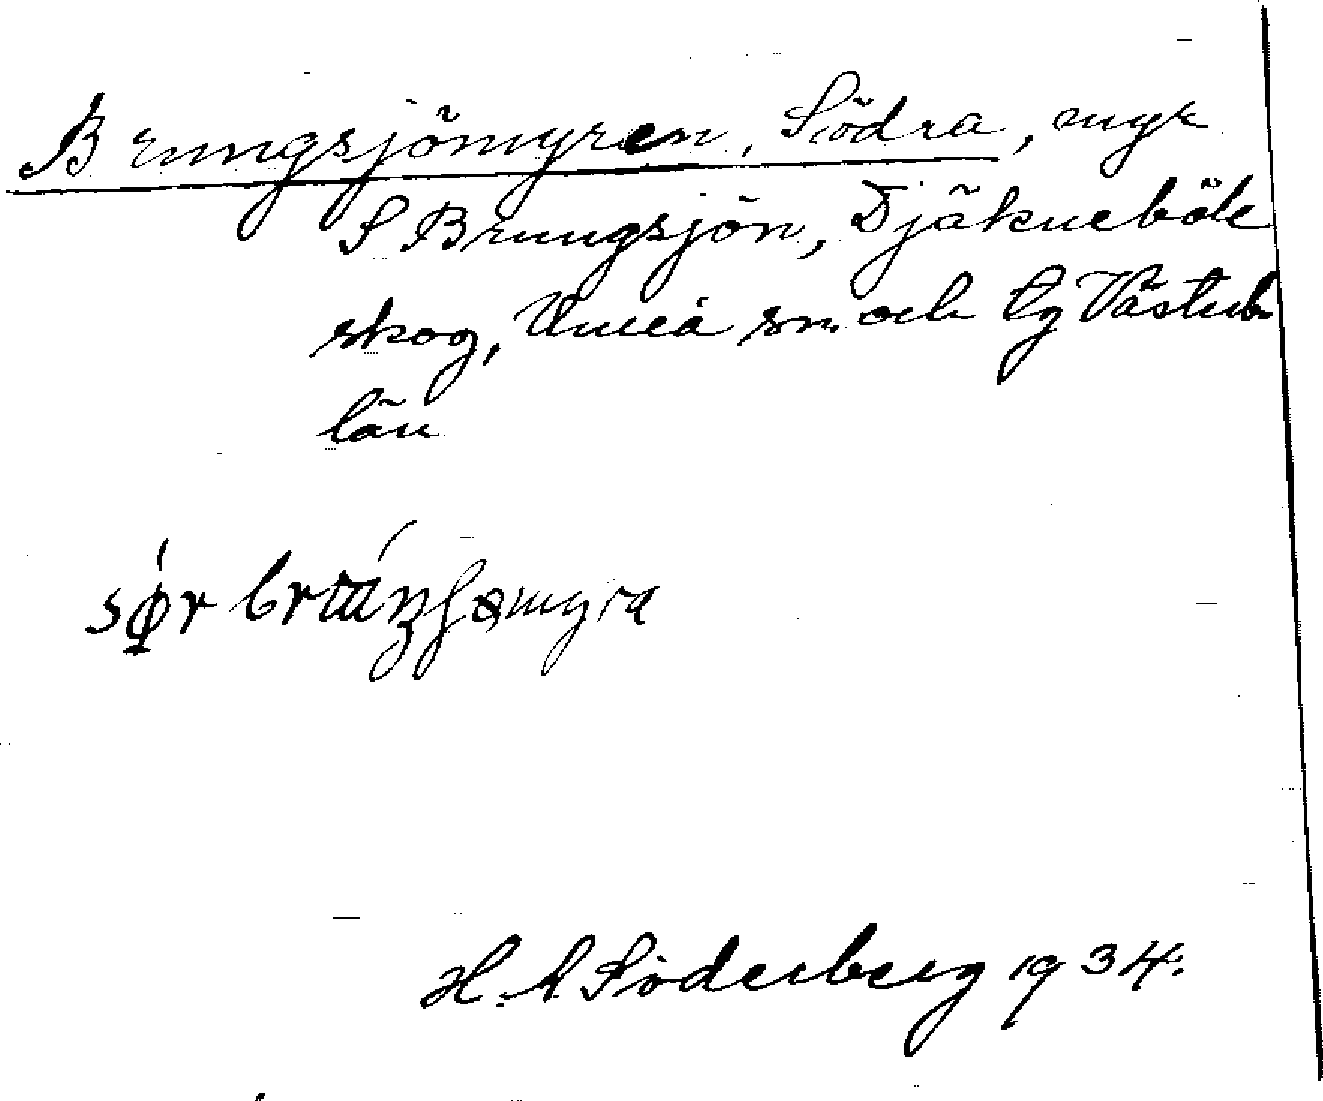 Brungsjömyren, Södra, myr
S Brungsjön, Djäkneböle
skog, Umeå sn. och tg Västerb
län
H. A Söderberg 1934.